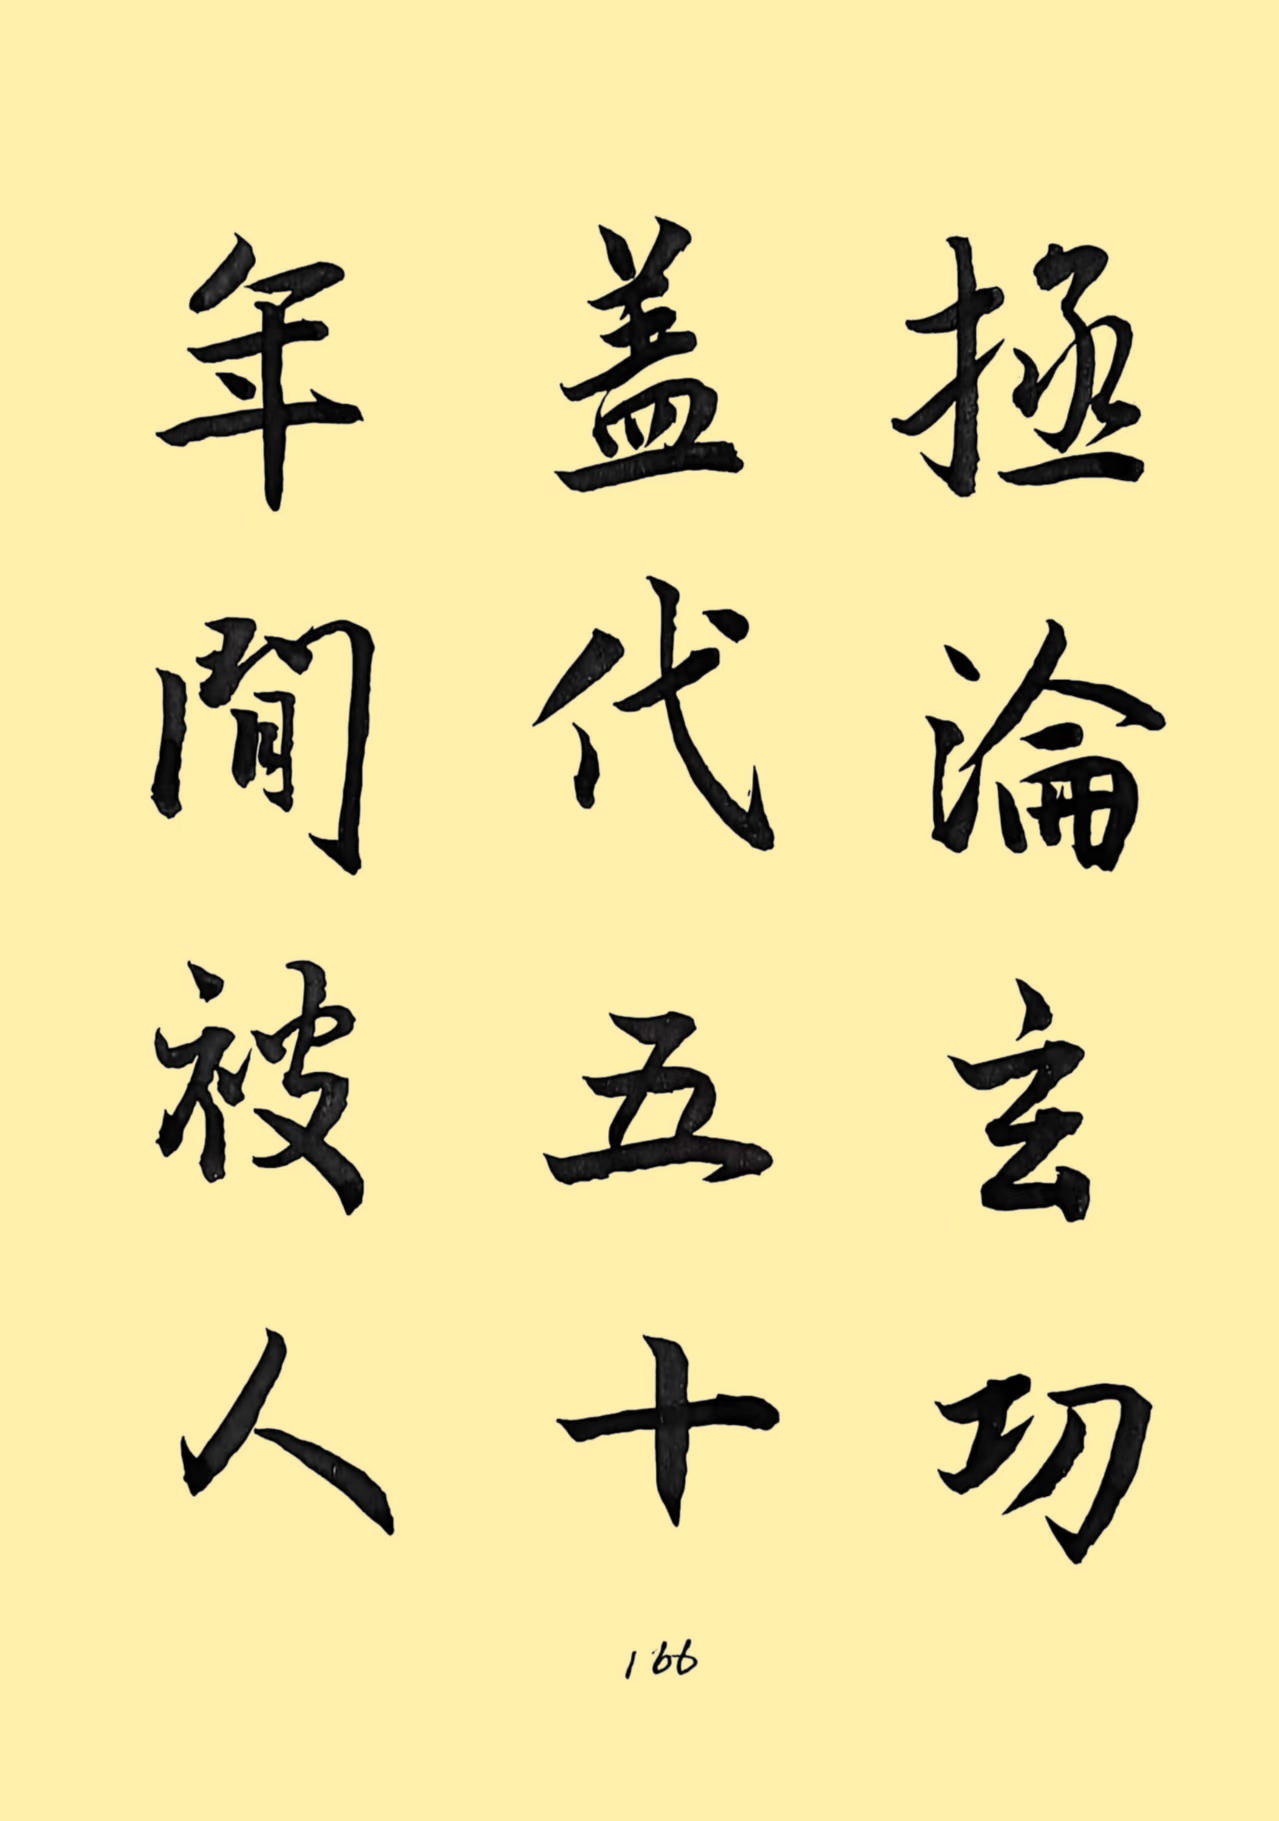 拯淪玄功
盖代五十
年間被人
166